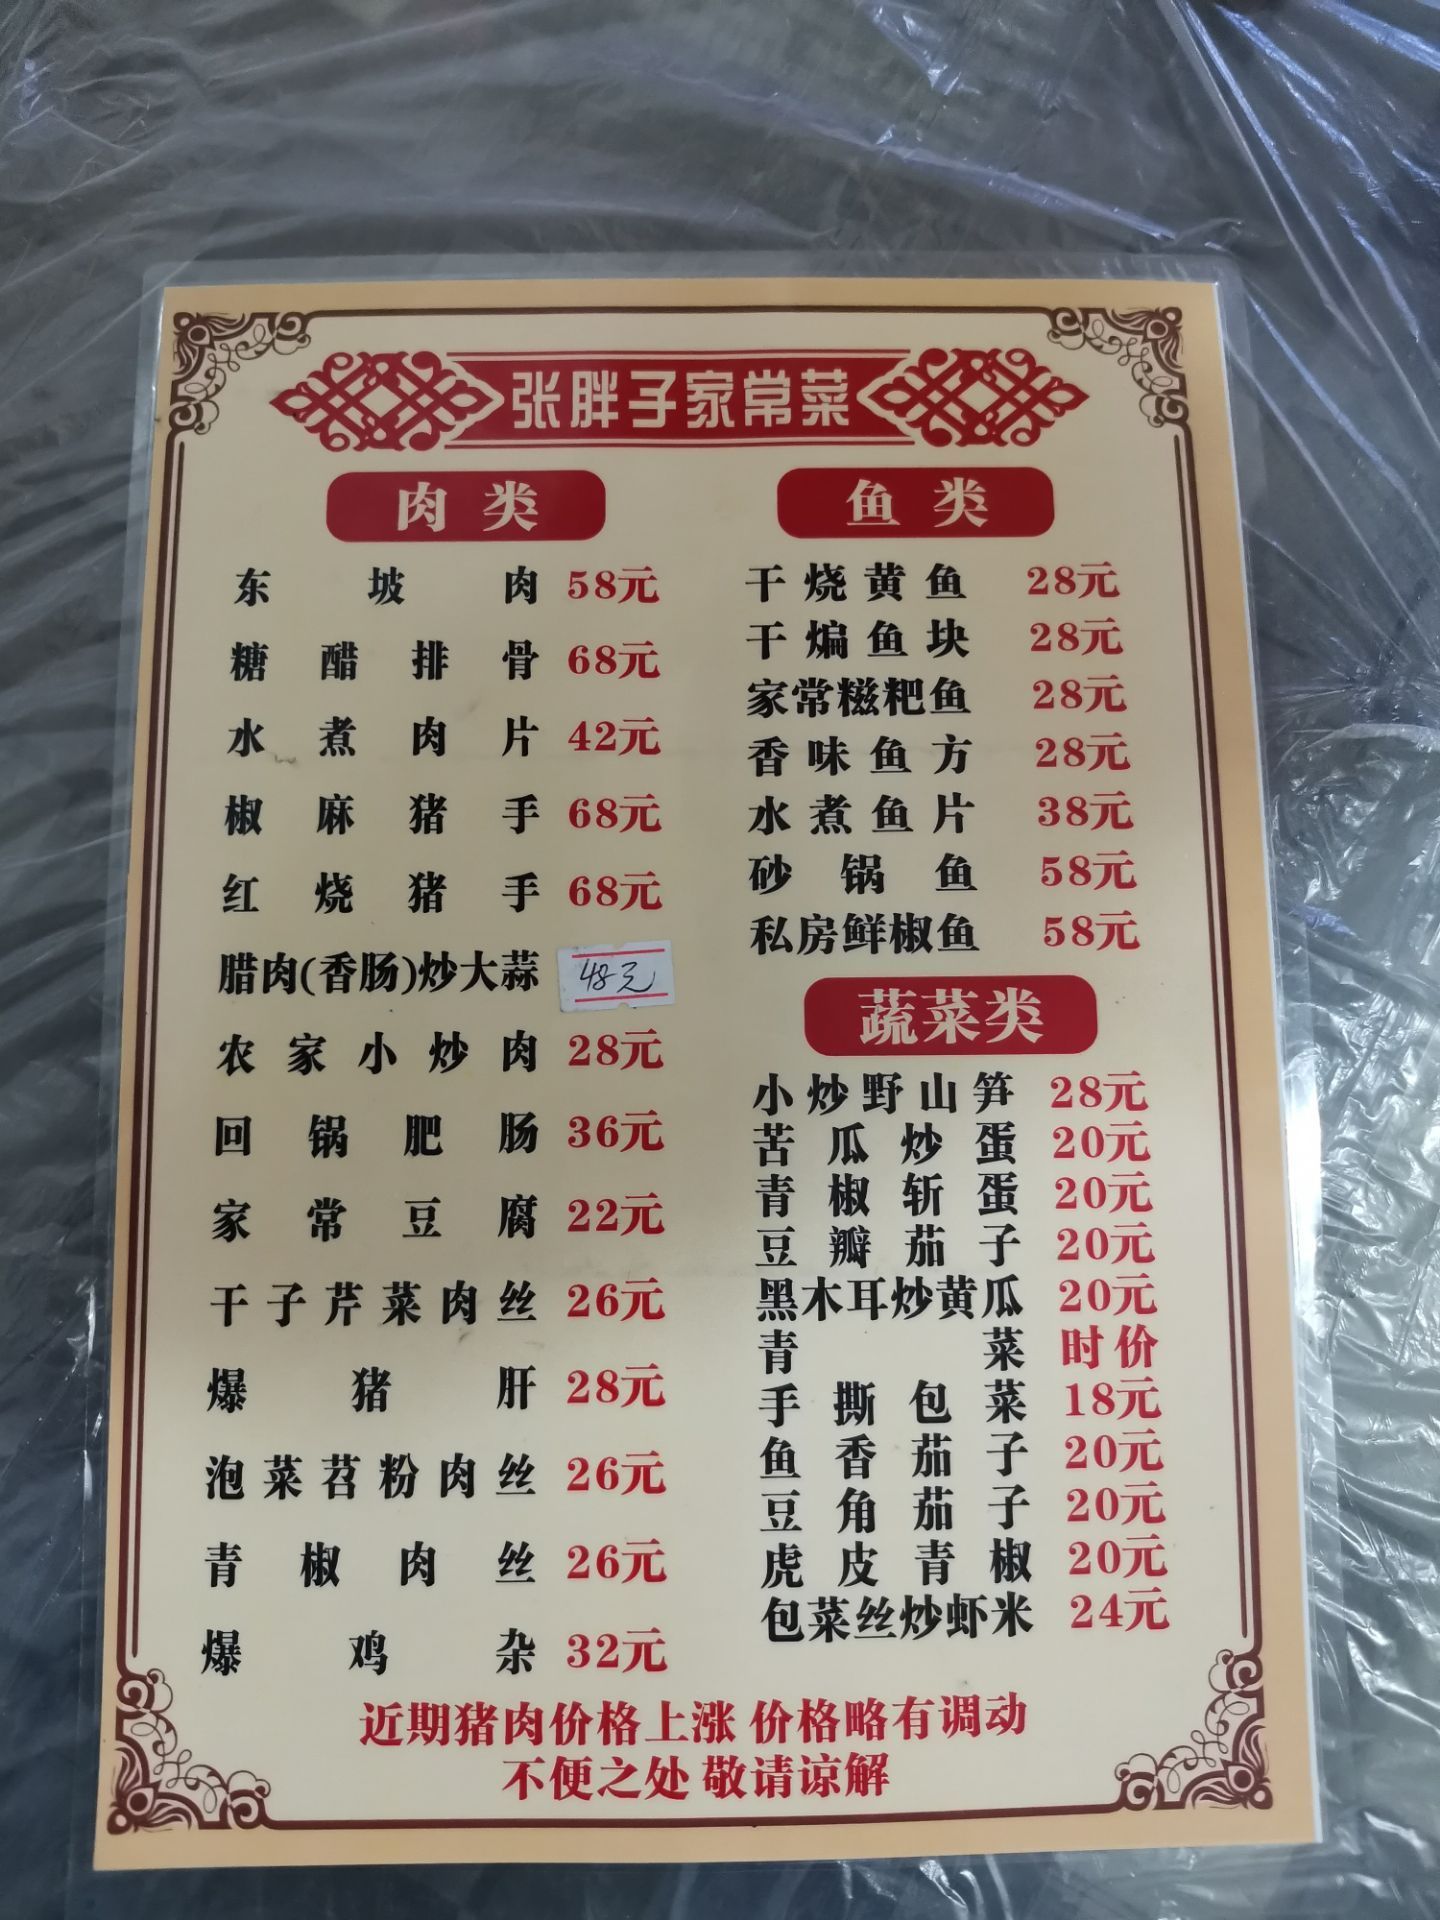 张胖子家常菜
肉类
东坡肉 58元
糖醋排骨 68元
水煮肉片 42元
椒麻猪手 68元
红烧猪手 68元
腊肉(香肠)炒大蒜 48元
农家小炒肉 28元
回锅肥肠 36元
家常豆腐 22元
干子芹菜肉丝 26元
爆猪肝 28元
泡菜苕粉肉丝 26元
青椒肉丝 26元
爆鸡杂 32元
鱼类
干烧黄鱼 28元
干煸鱼块 28元
家常糍粑鱼 28元
香味鱼方 28元
水煮鱼片 38元
砂锅鱼 58元
私房鲜椒鱼 58元
蔬菜类
小炒野山笋 28元
苦瓜炒蛋 20元
青椒斩蛋 20元
豆瓣茄子 20元
黑木耳炒黄瓜 20元
青菜 时价
手撕包菜 18元
鱼香茄子 20元
豆角茄子 20元
虎皮青椒 20元
包菜丝炒虾米 24元
近期猪肉价格上涨 价格略有调动
不便之处 敬请谅解